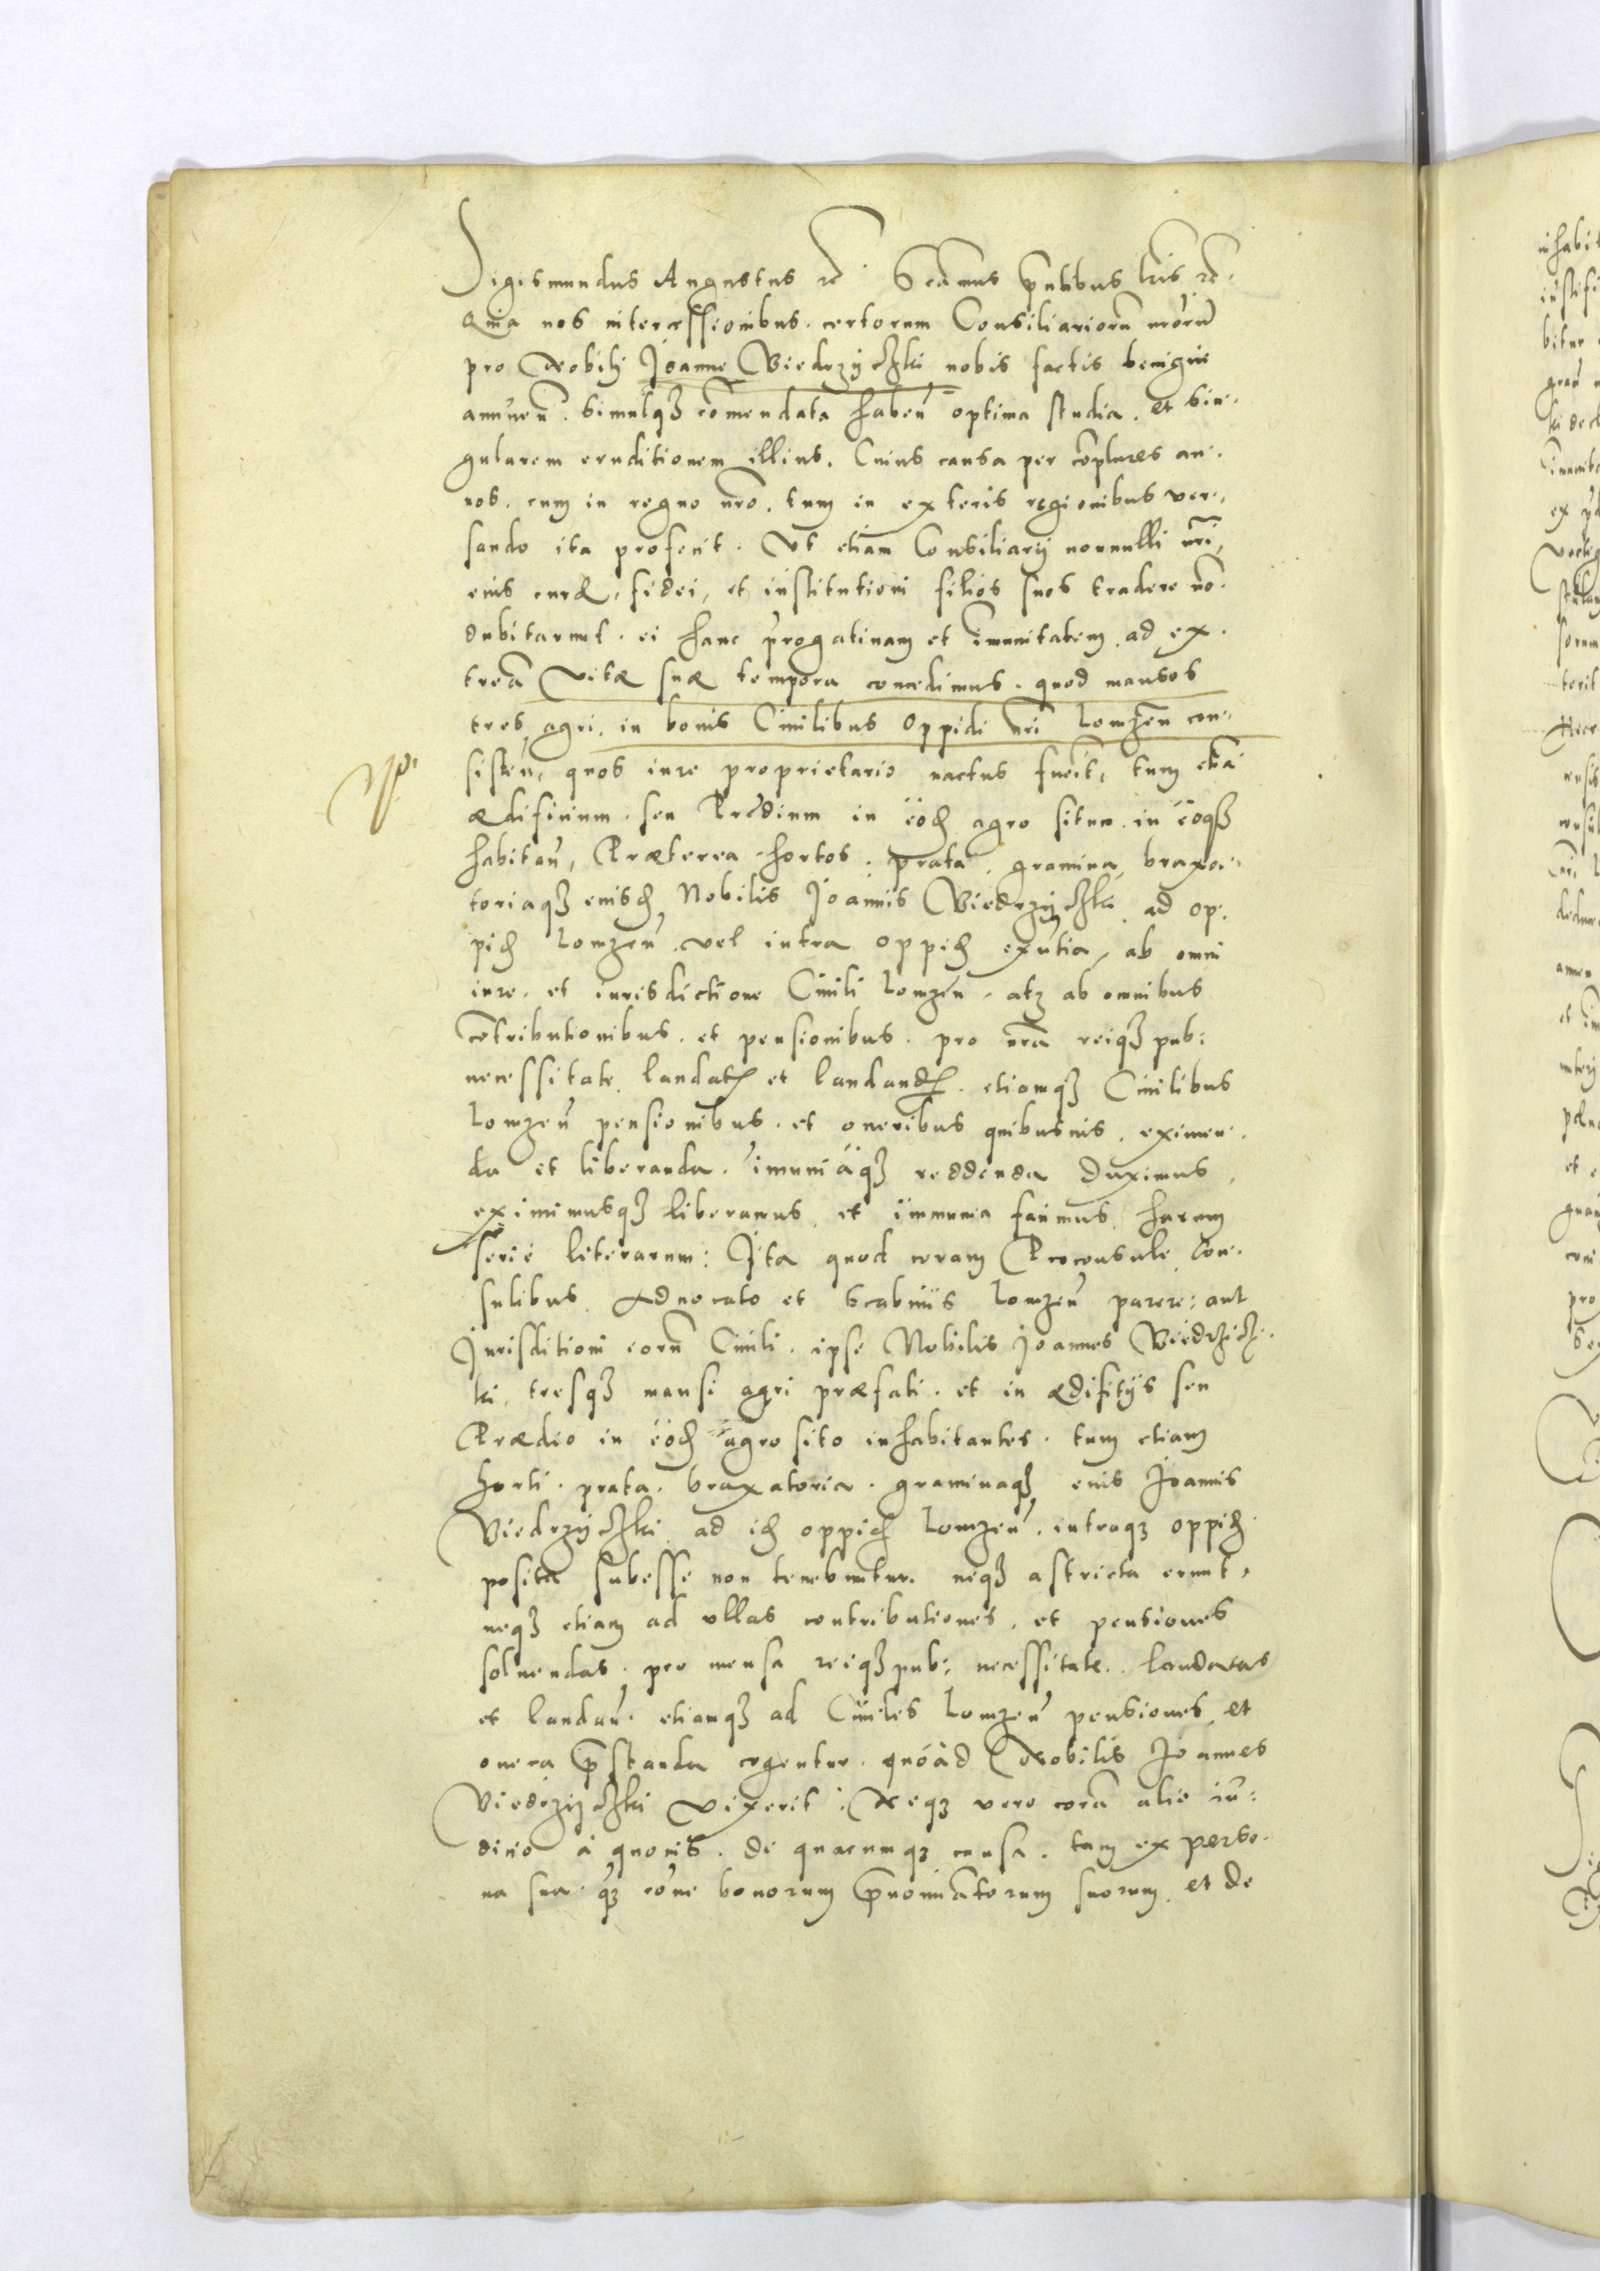 Sigismundus Augustus rc. Scimus pntibus lris rc.
Quia nos intercessionibus. certorum Consiliariorũ nrorũ
pro Nobili Joanne Wiedrzijchki nobis factis benigne
annuen. simulq3 comendata haben optima studia. et sin-
gularem eruditionem illius. Cuius causa per coplures an-
nos. cum in regno nro. tum in exteris regionibus ver-
sando ita profecit. Ut etiam Consiliarij nonnulli nri,
eius curæ, fidei, et institutioni filios suos tradere no
dubitarunt. ei hanc prrogatiuam et imunitatem ad ex-
trea vitæ suæ tempora concedimus. quod mansos
tres agri, in bonis Ciuilibus Oppidi nri Lomzen con-
sisten, quos iure proprietario nactus fuerit, tum etia
ædificium. seu Prædium in eod agro situm. in eoq3
habitan, Præterea hortos. prata, gramina, braxa-
toriaq3 eiusd Nobilis Joannis Wiedrzijchki ad op-
pid Lomzen. vel intra oppid exntia, ab omni
iure. et iurisdictione Ciuili Lomzen. atq3 ab omnibus
cotributionibus. et pensionibus. pro nra reiq3 pub:
necessitate laudatis et laudandis. etiamq3 Ciuilibus
Lomzen pensionibus. et oneribus quibusuis. eximen-
da et liberanda. imuniaq3 reddenda duximus,
eximimusq3 liberamus et immunia facimus harum
serie literarum: Ita quod coram Proconsule, Con-
sulibus Aduocato et Scabinis Lomzen parere: aut
Jurisditioni eorũ Ciuili. ipse Nobilis Joannes Wiedrzich-
ki, tresq3 mansi agri præfati. et in ædifitijs seu
Prædio in eod agro sito inhabitantes. tum etiam
horti. prata. braxatoria. graminaq3 eius Joannis
Wiedrzijchki ad id oppid Lomzen. intraq3 oppid
posita subesse non tenebuntur. neq3 astricta erunt,
neq3 etiam ad ullas contributiones. et pensiones
soluendas. pro mensa reiq3 pub: necessitate. laudatas
et laudan. etiamq3 ad Ciuiles Lomzen pensiones et
onera pstanda cogentur. quoad Nobilis Joannes
Wiedrzijchki vixerit. Neq3 vero cora alio iu-
dicio a quouis. de quacumq3 causa. tam ex perso-
na sua q3 rone bonorum pnominatorum suorum. et de